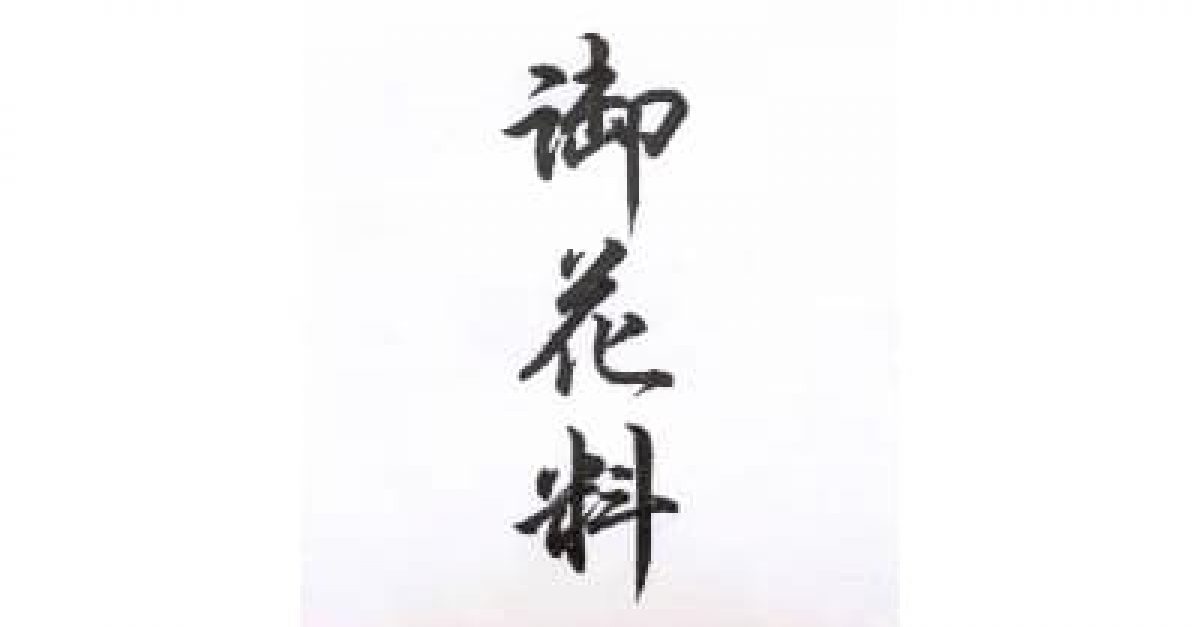 御花料